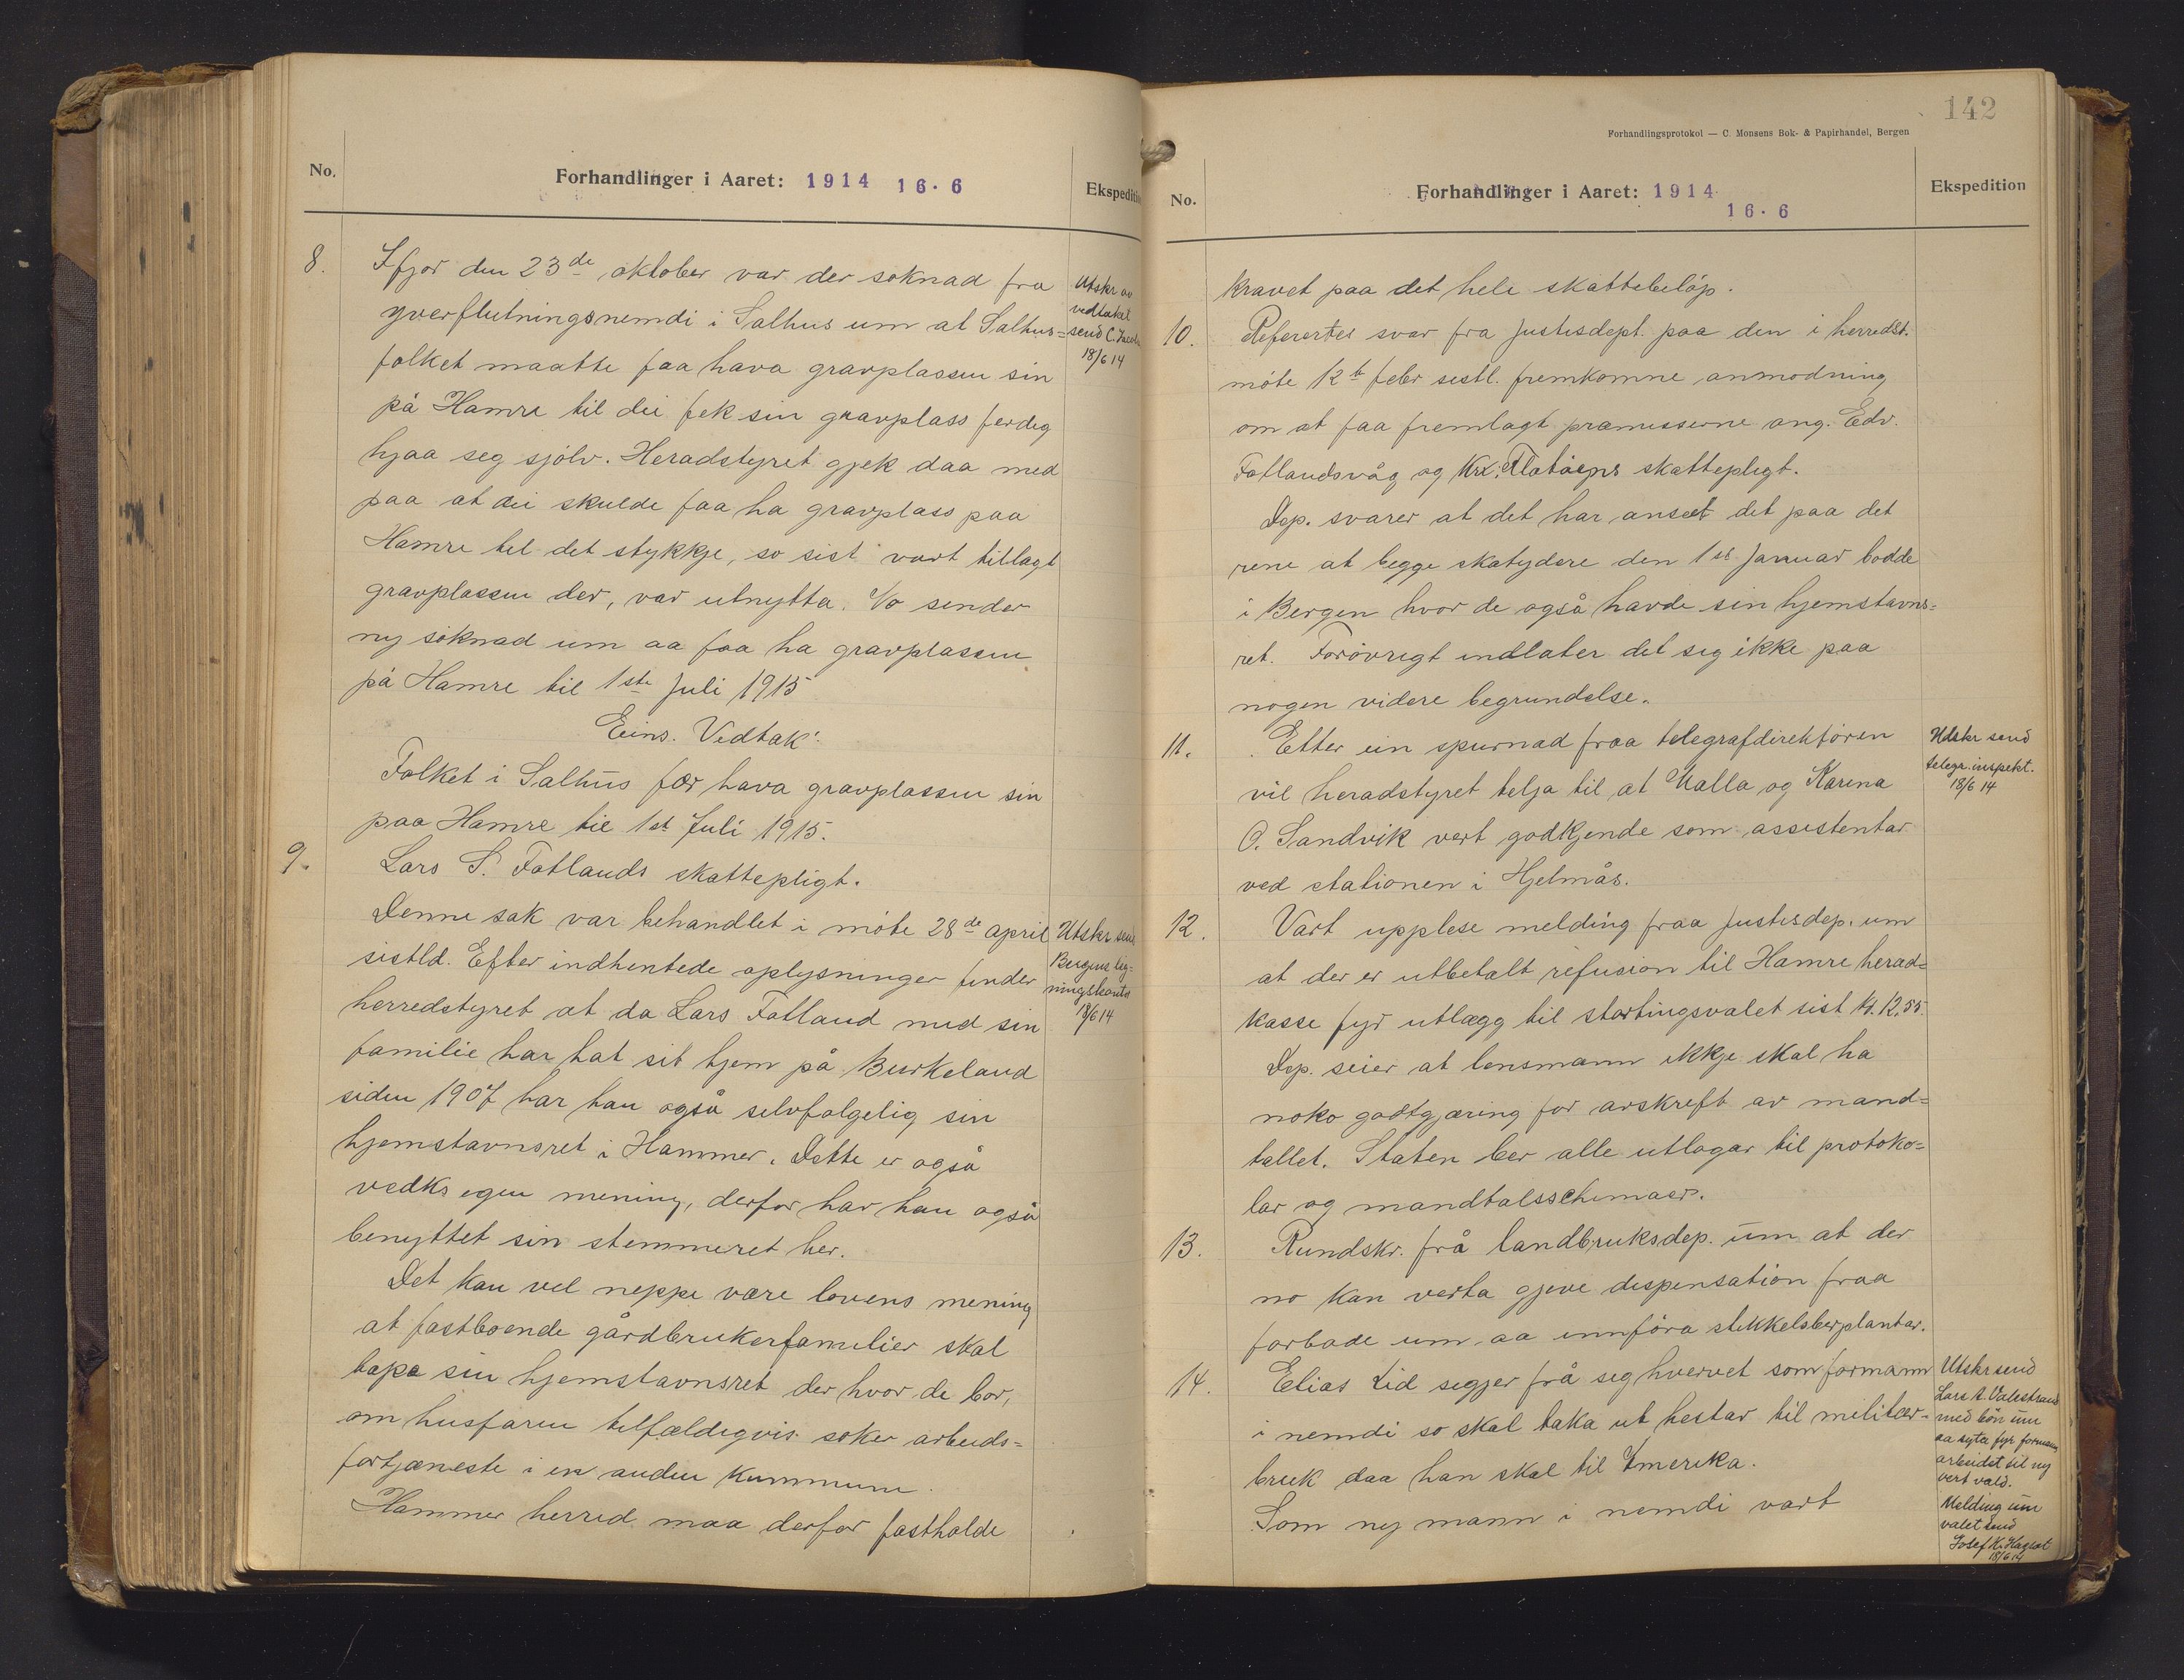 No.
Forhandlinger i Aaret: 1914 16.6
Ekspedition
8.
Ifjor den 23de oktober var der soknad fra
yverflutningsnemdi i Salhus um at Salhus=
folket maatte faa hava gravplassen sin
på Hamre til dei fek sin gravplass ferdig
hjaa seg sjølv. Heradstyret gjek daa med
paa at dei skulde faa ha gravplass paa
Hamre tel det stykkje, so sist vart tillagt
gravplassen der, var utnytta. No sender
ny søknad um aa faa ha gravplassen
på Hamre til 1ste Juli 1915
Eins. Vedtak:
Folket i Salhus fær hava gravplassen sin
paa Hamre til 1st Juli 1915.
Utskr av
vedtaket
send C.
18/6 14
9.
Lars S. Fotlands skattepligt.
Denne sak var behandlet i møte 28de april
sistld. Efter indhentede oplysninger finder
herredstyret at da Lars Fotland med sin
familie har hat sit hjem på Burkeland
siden 1907 har han også selvfølgelig sin
hjemstavnsret i Hammer. Dette er også
vedks egen mening, derfor har han også
benyttet sin stemmeret her.
Det kan vel neppe være lovens mening
at fastboende gårdbrukerfamilier skal
tape sin hjemstavnsret der hvor de bor,
om husfaren tilfældigvis søker arbeids=
fortjæneste i en anden kommune.
Hammer herred maa derfor fastholde
Utskr send
Bergens lig=
ningskontor
18/6 14
142
Forhandlingsprotokol — C. Monsens Bok- & Papirhandel, Bergen
No.
Forhandlinger i Aaret: 1914
16.6
Ekspedition
kravet paa det hele skattebeløp.
10.
Refererter svar fra Justisdept. paa den i herredst.
møte 12te febr sistl. fremkomne anmodning
om at faa fremlagt præmisserne ang. Edv.
Fotlandsvåg og Kr. Flatøens skattepligt.
Dep. svarer at det har anseet det paa det
rene at begge skatydere den 1st Januar bodde
i Bergen hvor de også havde sin hjemstavns=
ret. Forøvrigt indlater det seg ikke paa
nogen videre begrundelse.
11.
Etter ein spurnad fraa telegrafdirektøren
vil heradstyret telja til at Valla og Karina
O. Sandvik vert godkjende som assistentar
ved stationen i Hjelmås.
Utskr send
telegr.inspekt.
18/6 14
12.
Vart upplese melding fraa Justisdep. um
at der er utbetalt refusion til Hamre herad=
kasse fyr utlægg til stortingsvalet sist kr. 12,55.
Dep. seier at lensmann ikkje skal ha
noko godtgjæring for avskrift av mand=
tallet. Staten ber alle utlogar til protoko=
lar og mandtalsschemaer.
13.
Rundskr. frå landbruksdep. um at der
no kan verta gjeve dispensation fraa
forbode um aa innføra stikkelsberplantar.
14.
Elias Lid segjer frå seg hvervet som formann
i nemdi so skal taka ut hestar til militær=
bruk daa han skal til Amerika.
Som ny mann i nemdi vart
Utskr send
Lars A. Valestrand
med bøn um
aa syte fyr formans
arbeidet til ny
vert vald.
Melding um
valet send
Josef K. Hagset
18/6 14